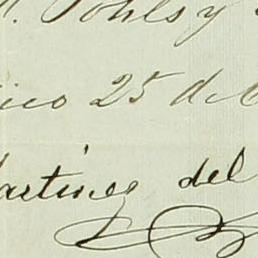 Pohls y
ico 25 de
artinez del